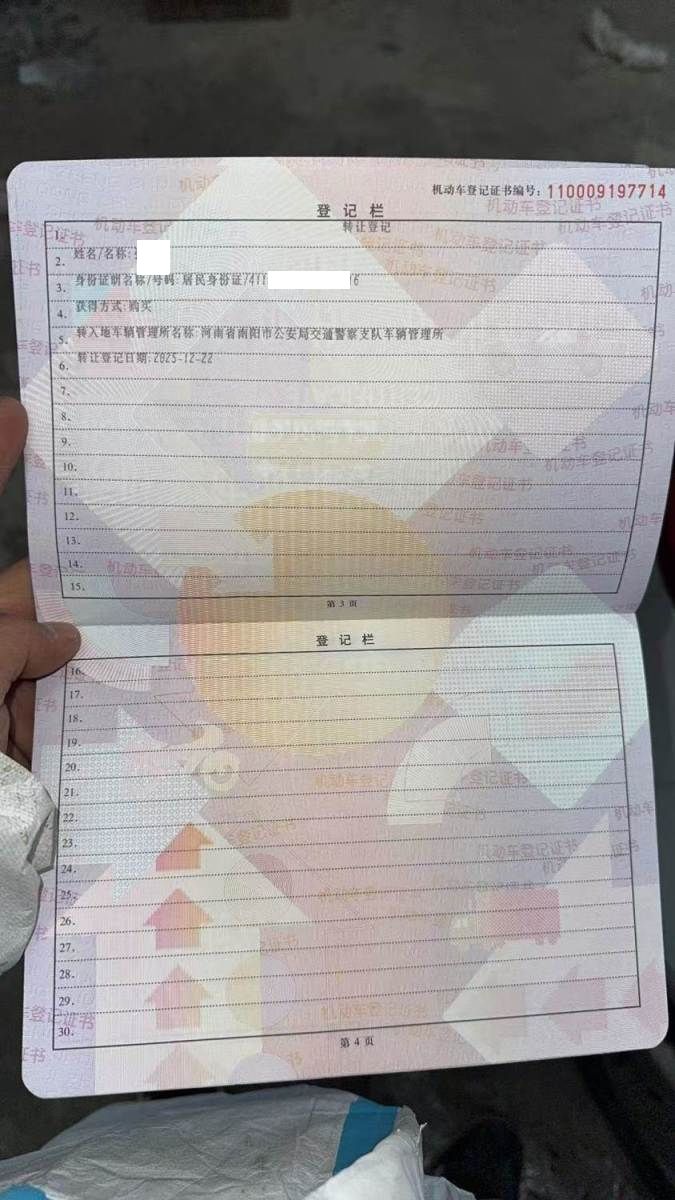 机动车登记证书编号：110009197714
登记栏
1. 转让登记
2. 姓名/名称:
3. 身份证明名称/号码:居民身份证/411 6
4. 获得方式:购买
5. 转入地车辆管理所名称:河南省南阳市公安局交通警察支队车辆管理所
6. 转让登记日期:2025-12-22
7.
8.
9.
10.
11.
12.
13.
14.
15.
第 3 页
登记栏
16.
17.
18.
19.
20.
21.
22.
23.
24.
25.
26.
27.
28.
29.
30.
第 4 页